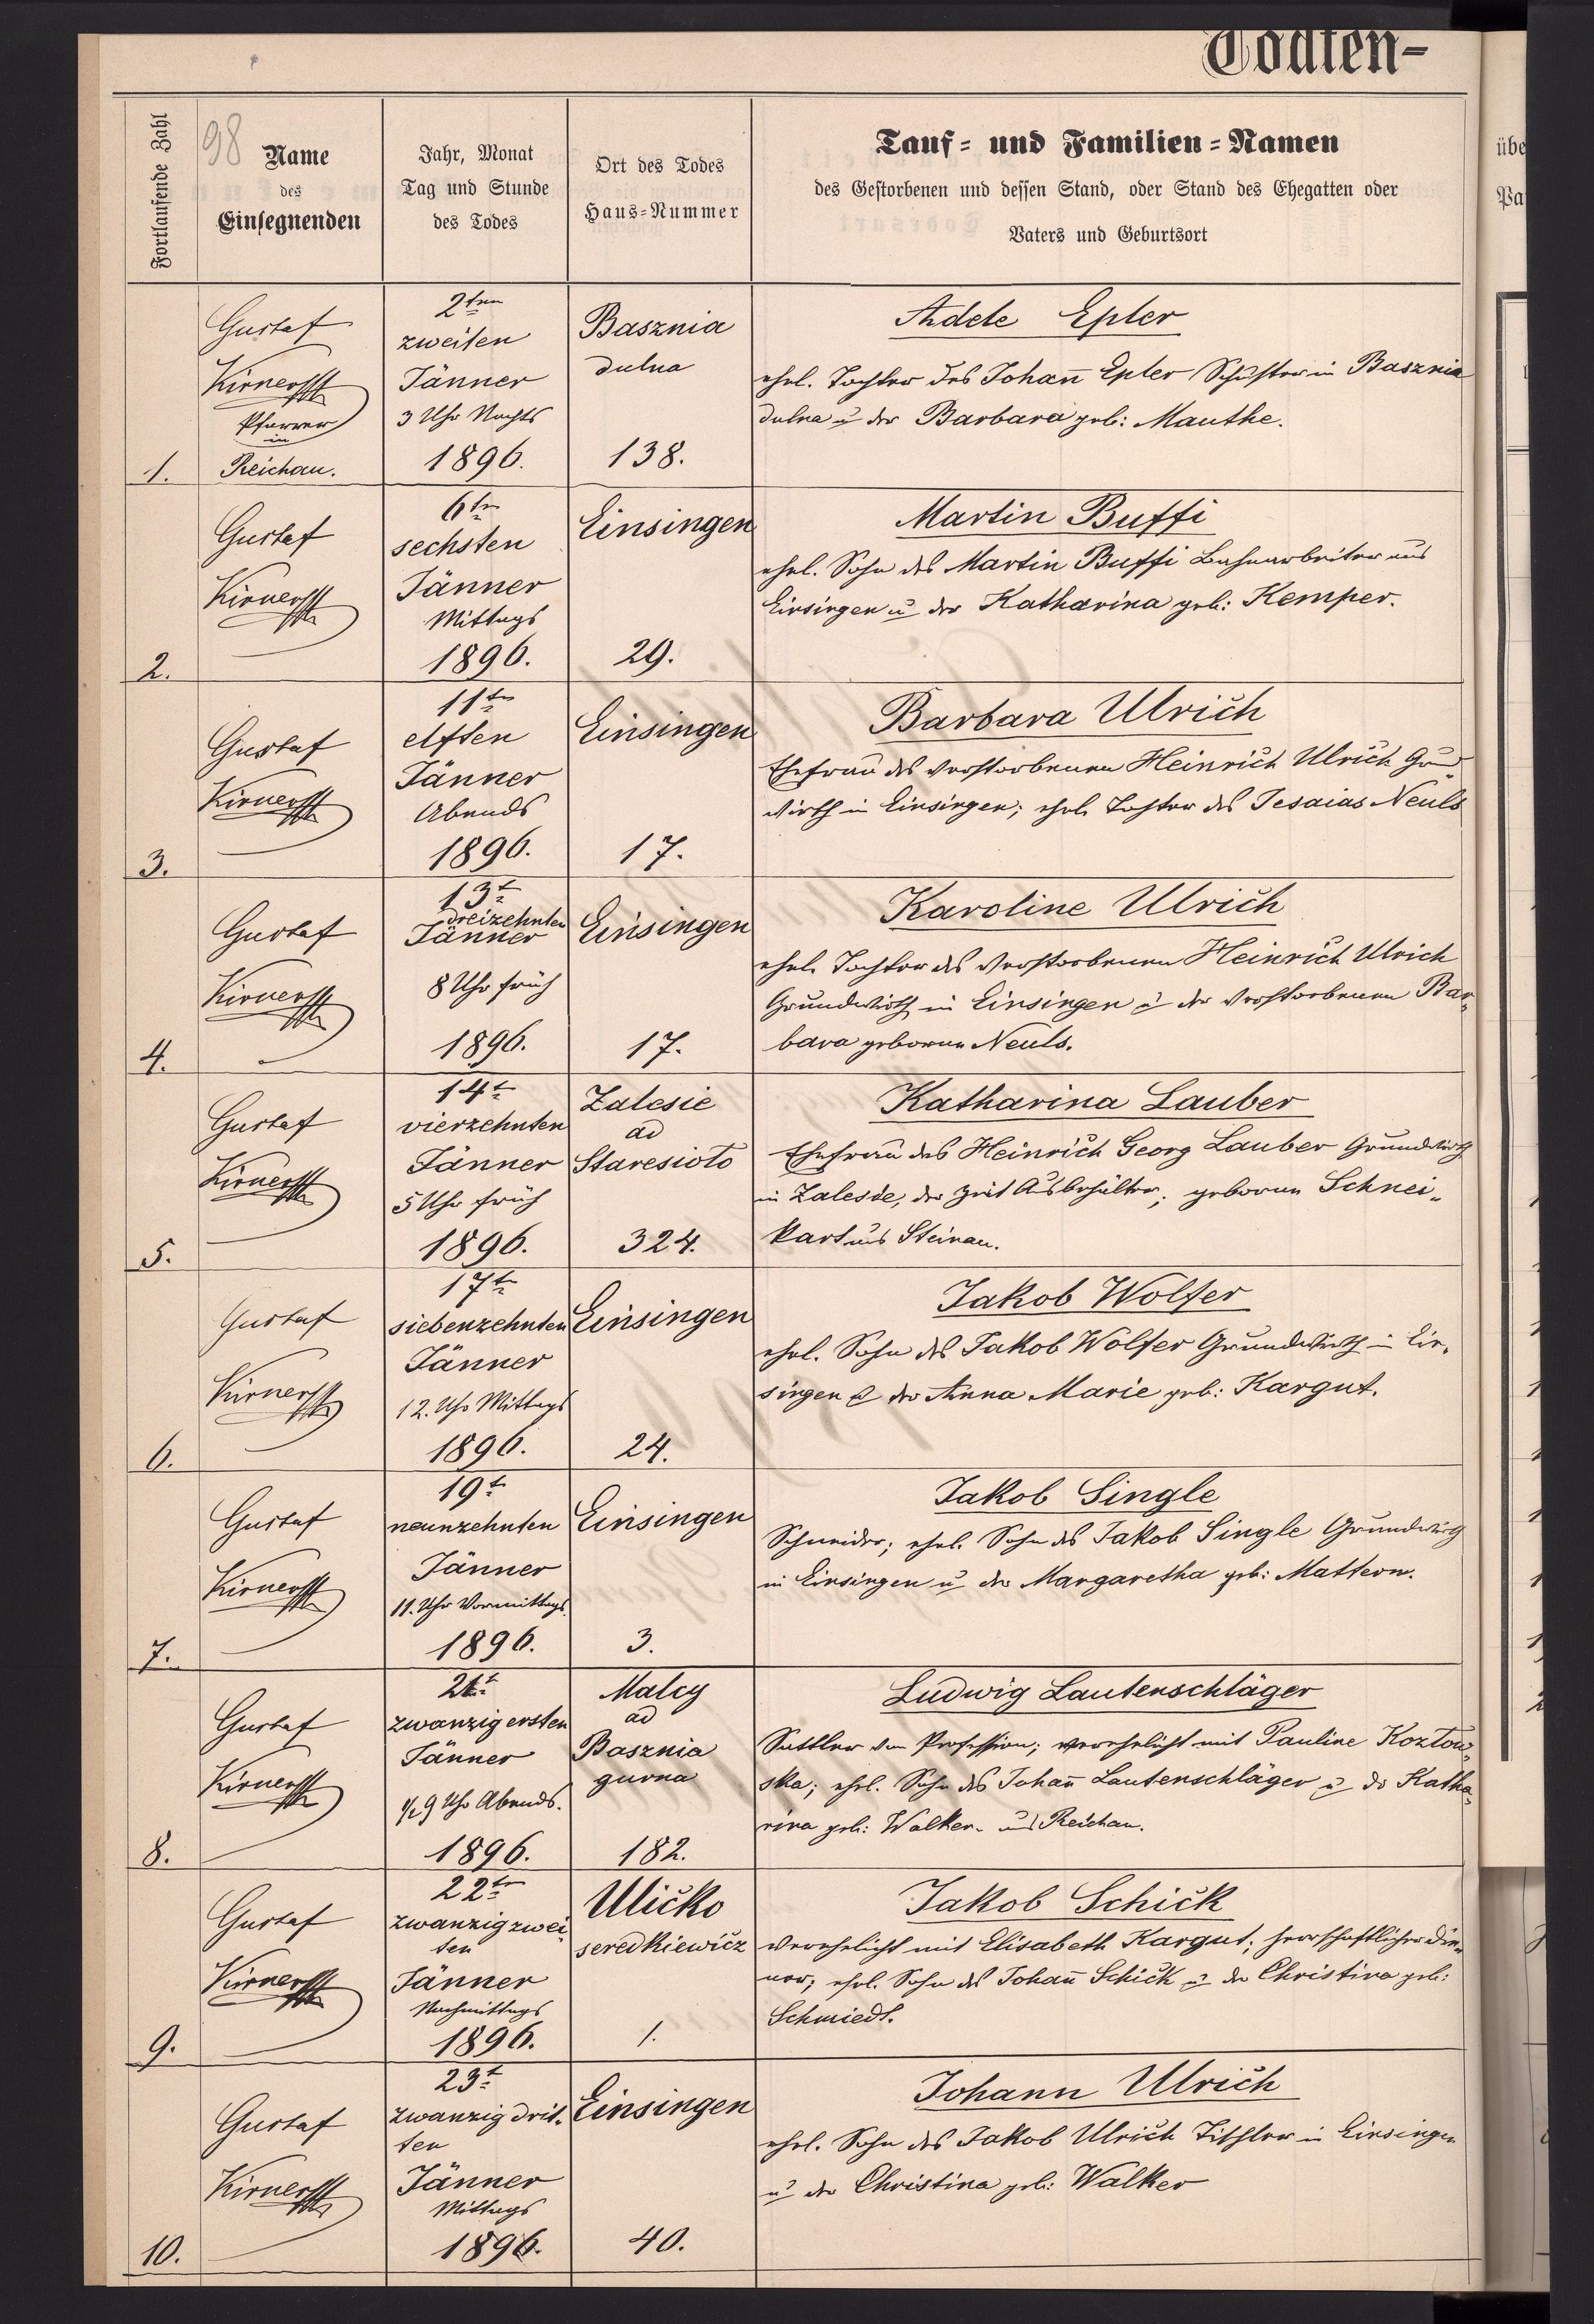 Todten-
98
Fortlaufende Zahl
Name
des
Einsegnenden
Jahr, Monat
Tag und Stunde
des Todes
Ort des Todes
Haus-Nummer
Tauf- und Familien-Namen
des Gestorbenen und dessen Stand, oder Stand des Ehegatten oder
Vaters und Geburtsort
übe
Pa
1.
Gustaf
Kirner
Pfarrer
in
Reichau.
2ten
zweiten
Jänner
3 Uhr Nachts
1896.
Basznia
dulna
138.
Adele Epler
ehel. Tochter des Johañ Epler Schuster in Basznia
dulna u der Barbara geb: Mauthe.
2.
Gustaf
Kirner
6tn
sechsten
Jänner
Mittags
1896.
Einsingen
29.
Martin Buffi
ehel. Sohn des Martin Buffi Bahnarbeiter aus
Einsingen u der Katharina geb: Kemper.
3.
Gustaf
Kirner
11tn
elften
Jänner
Abends
1896.
Einsingen
17.
Barbara Ulrich
Ehefrau des verstorbenen Heinrich Ulrich Grund
wirth in Einsingen; ehel. Tochter des Jesaias Neuls
4.
Gustaf
Kirner
13t
dreizehnten
Jänner
8 Uhr früh
1896.
Einsingen
17.
Karoline Ulrich
ehel. Tochter des verstorbenen Heinrich Ulrich
Grundwirth in Einsingen u der verstorbenen Bar„
bara geborene Neuls.
5.
Gustaf
Kirner
14t
vierzehnten
Jänner
5 Uhr früh
1896.
Zalesie
ad
Staresioło
324.
Katharina Lauber
Ehefrau des Heinrich Georg Lauber Grundwirth
in Zalesie, der Zeit Ausbehälter; geborene Schnei„
kart aus Steinau.
6.
Gustaf
Kirner
17tn
siebenzehnten
Jänner
12. Uhr Mittags
1896.
Einsingen
24.
Jakob Wolfer
ehel. Sohn des Jakob Wolfer Grundwirth in Ein„
singen u der Anna Marie geb: Kargut.
7.
Gustaf
Kirner
19t
neunzehnten
Jänner
11. Uhr Vormittags
1896.
Einsingen
3.
Jakob Single
Schneider; ehel. Sohn des Jakob Single Grundwirth
in Einsingen u der Margaretha geb: Mattern.
8.
Gustaf
Kirner
21t
zwanzig ersten
Jänner
1/2 9 Uhr Abends.
1896.
Malcy
ad
Basznia
gurna
182.
Ludwig Lautenschläger
Sattler von Profession; verehelicht mit Pauline Kozłow„
ska; ehel. Sohn des Johañ Lautenschläger u der Katha„
rina geb: Walker. aus Reichau.
9.
Gustaf
Kirner
22tn
zwanzig zwei„
ten
Jänner
Nachmittags
1896.
Uličko
seredkiewicz
1.
Jakob Schick
verehelicht mit Elisabeth Kargut; herrschaftlicher Die„
ner; ehel. Sohn des Johañ Schick u der Christina geb:
Schmiedt.
10.
Gustaf
Kirner
23t
zwanzig drit„
ten
Jänner
Mittags
1896.
Einsingen
40.
Johann Ulrich
ehel. Sohn des Jakob Ulrich Tischler in Einsingen
u der Christina geb: Walker